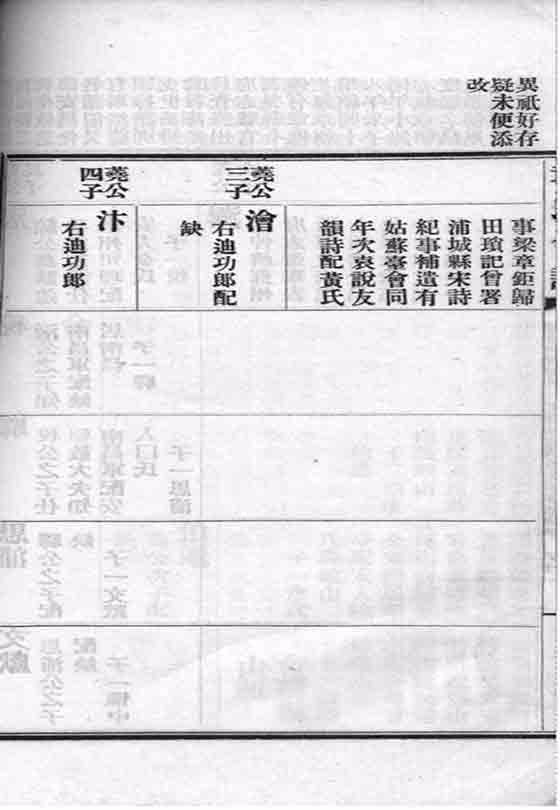 異祇好存
疑未便添
改
事梁章鉅歸
田瑣記曾署
浦城縣宋詩
紀事補遺有
姑蘇臺會同
年次袁說友
韻詩配黃氏
蕘公
三子
澮
右迪功郎配
缺
蕘公
四子
汴
右迪功郎